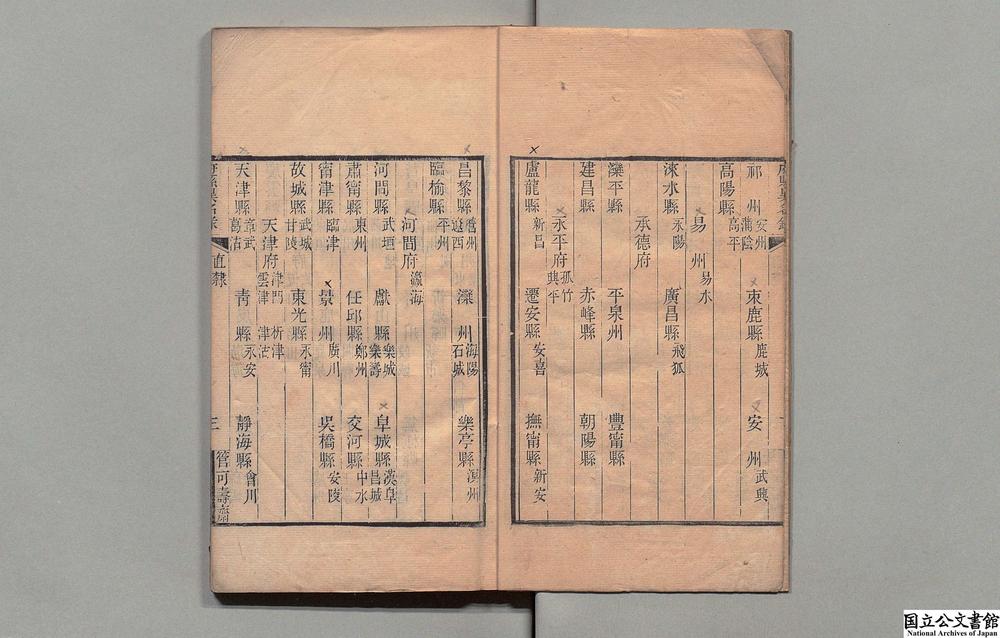 祁州 安州 蒲陰 束鹿縣 鹿城 安州 武興
高陽縣 高平
易州 易水
淶水縣 永陽 廣昌縣 飛狐
承德府
灤平縣 平泉州 豐甯縣
建昌縣 赤峰縣 朝陽縣
永平府 孤竹 興平
盧龍縣 新昌 遷安縣 安喜 撫甯縣 新安
昌黎縣 營州 遼西 灤州 海陽 石城 樂亭縣 溟州
臨榆縣 平州
河間府 瀛海
河間縣 武垣 獻縣 樂城 樂壽 阜城縣 漢阜 昌城
肅甯縣 東州 任邱縣 鄚州 交河縣 中水
甯津縣 臨津 景州 廣川 吳橋縣 安陵
故城縣 武城 甘陵 東光縣 永甯
天津府 津門 雲津 析津 津沽
天津縣 章武 葛沽 青縣 永安 靜海縣 會川
直隸 三 管可壽齋
国立公文書館
National Archives of Japan